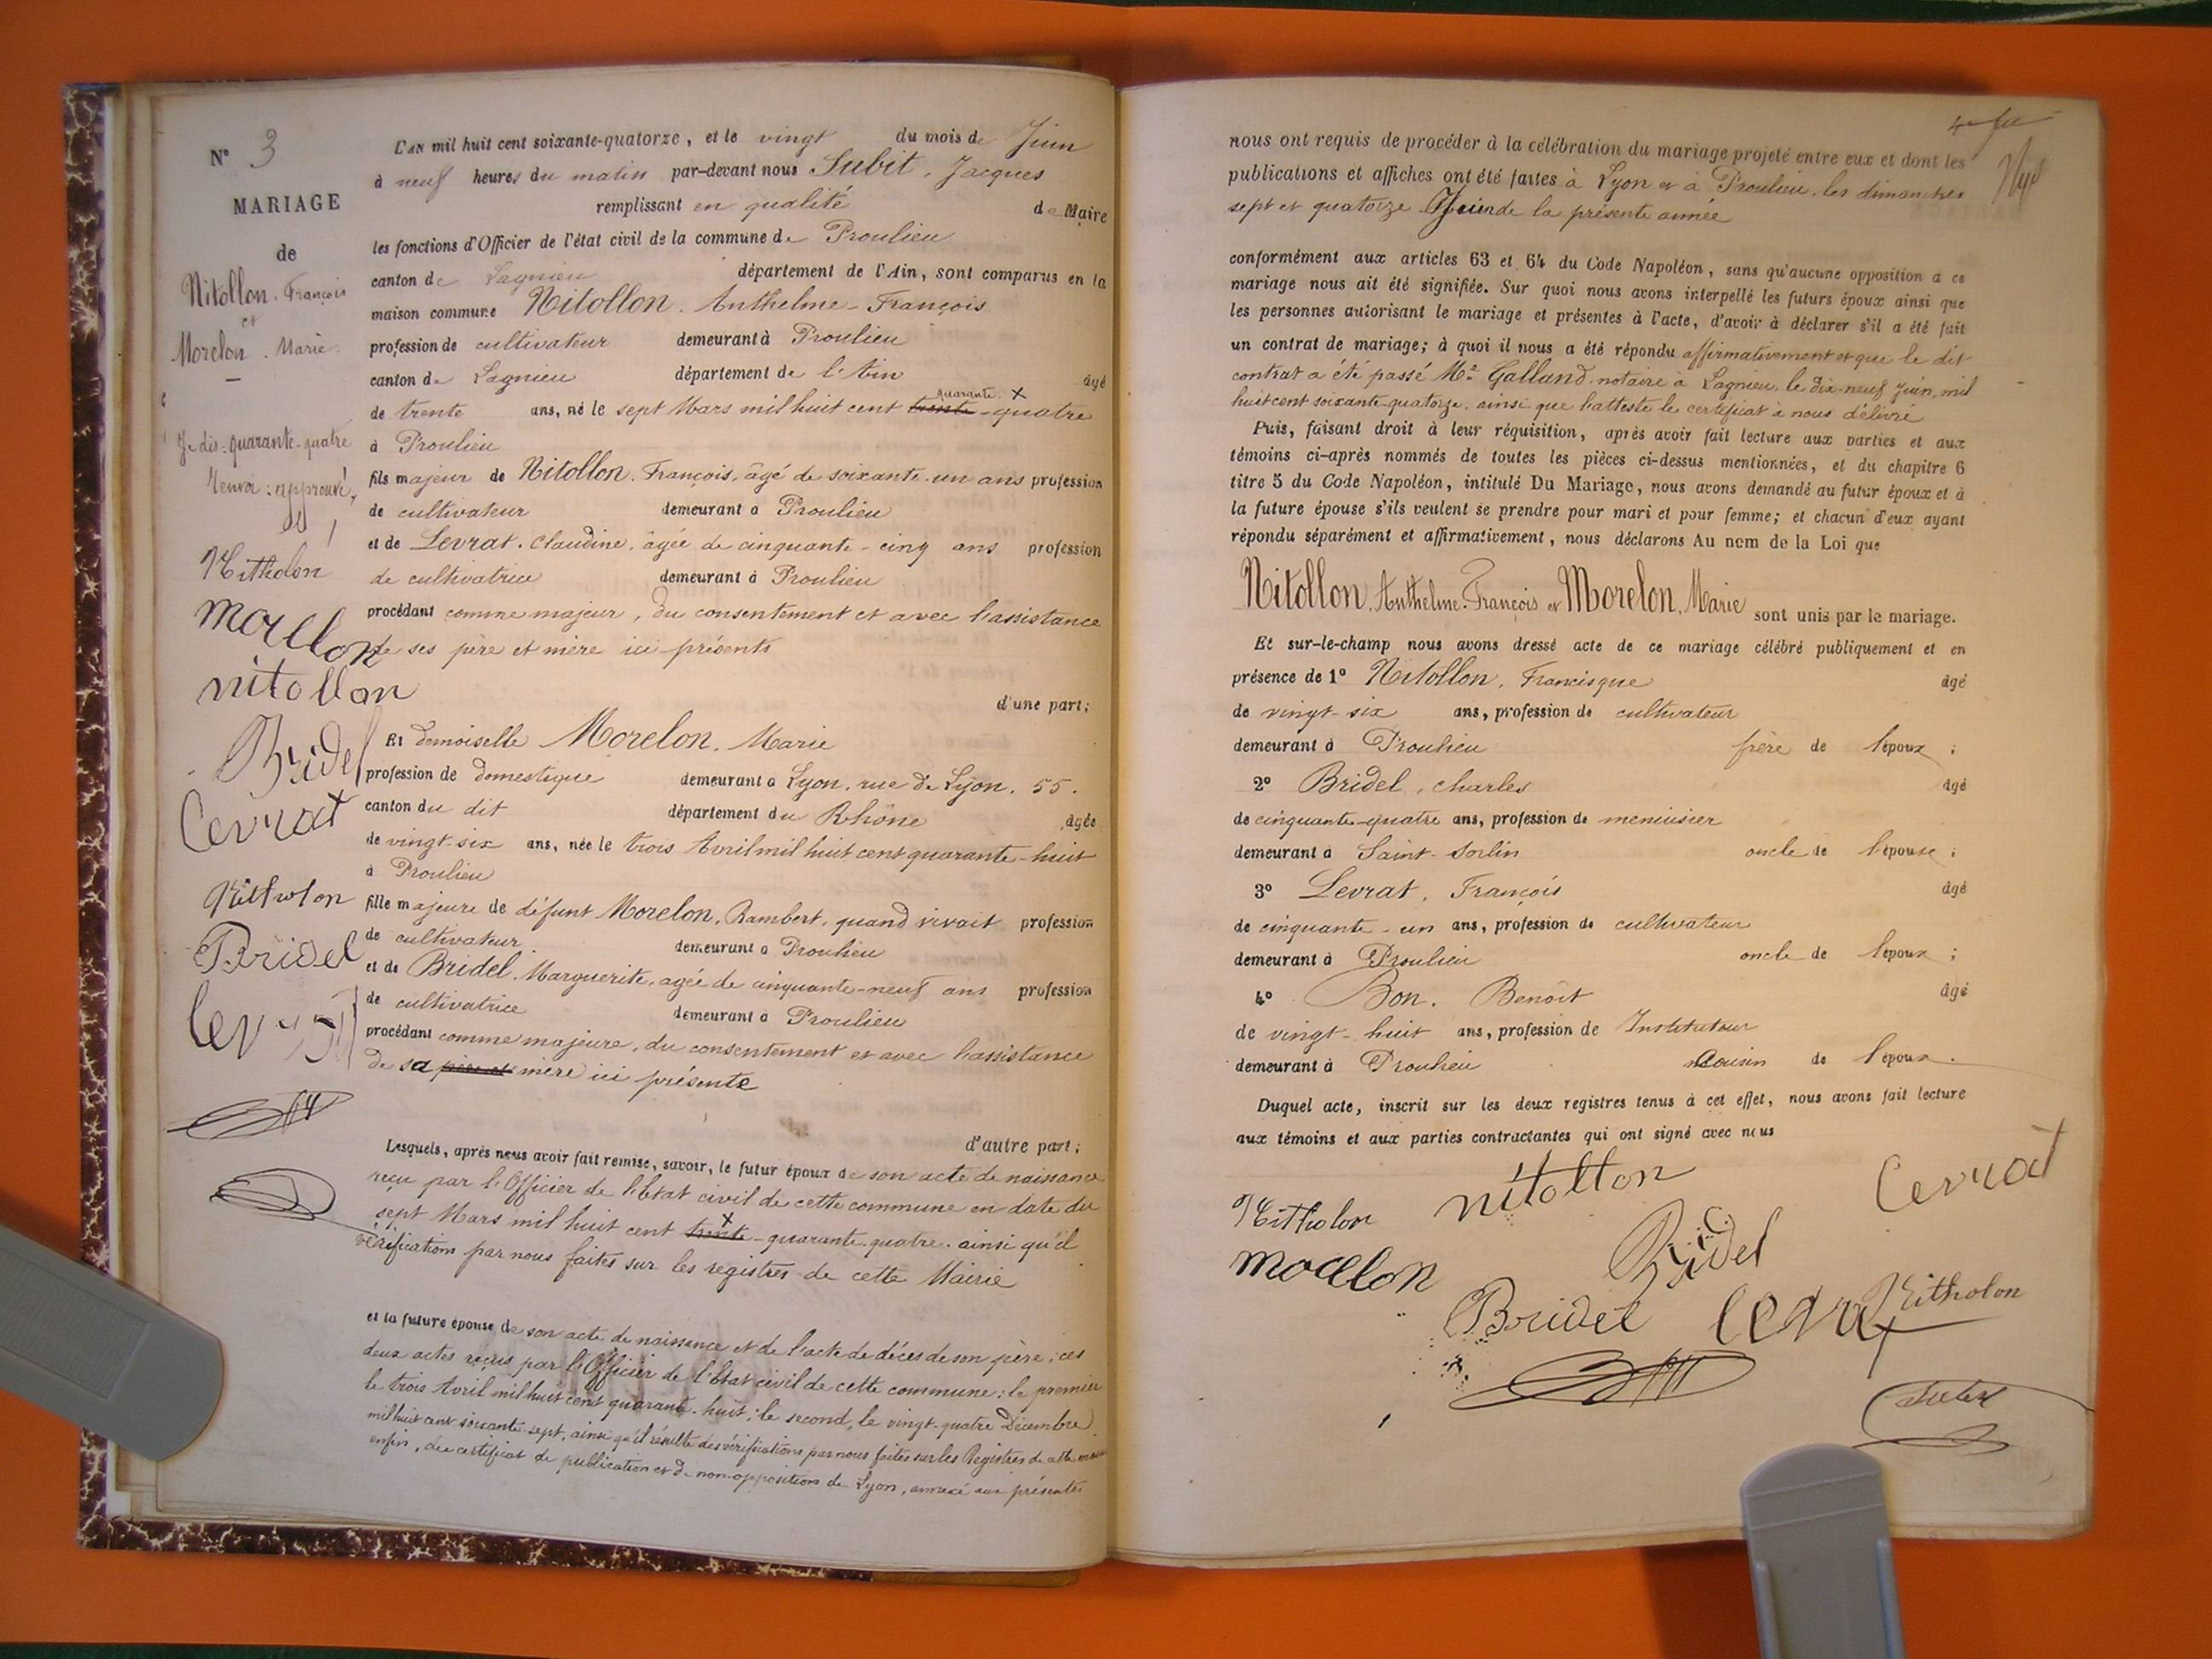 N° 3
MARIAGE
de
Nitollon. François
et
Morelon. Marie.
Je dis: quarante-quatre
Renvoi: approuvé,
Nitholon
morelon
nitollon
Bridel
Levrat
Nitholon
Bridel
levrat
L'AN mil huit cent soixante-quatorze, et le vingt du mois de Juin
à neuf heures du matin par-devant nous Subit, Jacques
remplissant en qualité de Maire
les fonctions d'Officier de l'état civil de la commune de Proulieu
canton de Lagnieu département de l'Ain, sont comparus en la
maison commune Nitollon. Anthelme-François
profession de cultivateur demeurant à Proulieu
canton de Lagnieu département de l'Ain âgé
quarante. X
de trente ans, né le sept Mars mil huit cent trente-quatre
à Proulieu
fils majeur de Nitollon. François, âgé de soixante-un ans profession
de cultivateur demeurant à Proulieu
et de Levrat. Claudine, âgée de cinquante-cinq ans profession
de cultivatrice demeurant à Proulieu
procédant comme majeur, du consentement et avec l'assistance
de ses père et mère ici présents
d'une part;
Et demoiselle Morelon. Marie
profession de domestique demeurant à Lyon, rue de Lyon, 55.
canton du dit département du Rhône âgée
de vingt-six ans, née le trois Avril mil huit cent quarante-huit
à Proulieu
fille majeure de défunt Morelon, Rambert, quand vivait profession
de cultivateur demeurant à Proulieu
et de Bridel. Marguerite, agée de cinquante-neuf ans profession
de cultivatrice demeurant à Proulieu
procédant comme majeure, du consentement et avec l'assistance
de sa père et mère ici présente
d'autre part;
Lesquels, après nous avoir fait remise, savoir, le futur époux de son acte de naissance
reçu par l'Officier de l'Etat civil de cette commune en date du
sept Mars mil huit cent trente X - quarante-quatre. ainsi qu'il
vérifications par nous faites sur les registres de cette Mairie
et la future épouse de son acte de naissance et de l'acte de décès de son père; ces
deux actes reçus par l'Officier de l'Etat civil de cette commune; le premier
le trois Avril mil huit cent quarante-huit; le second, le vingt-quatre Décembre
mil huit cent soixante-sept, ainsi qu'il résulte des vérifications par nous faites sur les Registres de cette mairie
enfin, du certificat de publication et de non-opposition de Lyon, annexé aux présentes
nous ont requis de procéder à la célébration du mariage projeté entre eux et dont les
publications et affiches ont été faites à Lyon et à Proulieu, les dimanches
sept et quatorze Juin de la présente année
conformément aux articles 63 et 64 du Code Napoléon, sans qu'aucune opposition à ce
mariage nous ait été signifiée. Sur quoi nous avons interpellé les futurs époux ainsi que
les personnes autorisant le mariage et présentes à l'acte, d'avoir à déclarer s'il a été fait
un contrat de mariage; à quoi il nous a été répondu affirmativement et que le dit
contrat a été passé Me Galland notaire à Lagnieu, le dix-neuf Juin, mil
huit cent soixante-quatorze, ainsi que l'atteste le certificat à nous délivré
Puis, faisant droit à leur réquisition, après avoir fait lecture aux parties et aux
témoins ci-après nommés de toutes les pièces ci-dessus mentionnées, et du chapitre 6
titre 5 du Code Napoléon, intitulé Du Mariage, nous avons demandé au futur époux et à
la future épouse s'ils veulent se prendre pour mari et pour femme; et chacun d'eux ayant
répondu séparément et affirmativement, nous déclarons Au nom de la Loi que
Nitollon, Anthelme-François et Morelon, Marie sont unis par le mariage.
Et sur-le-champ nous avons dressé acte de ce mariage célébré publiquement et en
présence de 1° Nitollon, Francisque âgé
de vingt-six ans, profession de cultivateur
demeurant à Proulieu frère de l'époux;
2° Bridel, Charles âgé
de cinquante-quatre ans, profession de menuisier
demeurant à Saint-Sorlin oncle de l'épouse;
3° Levrat, François âgé
de cinquante-un ans, profession de cultivateur
demeurant à Proulieu oncle de l'époux;
4° Bon. Benoît âgé
de vingt-huit ans, profession de Instituteur
demeurant à Proulieu Cousin de l'époux.
Duquel acte, inscrit sur les deux registres tenus à cet effet, nous avons fait lecture
aux témoins et aux parties contractantes qui ont signé avec nous
Nitholon nitollon Levrat
morelon Bridel
Bridel levrat Nitholon
Subit